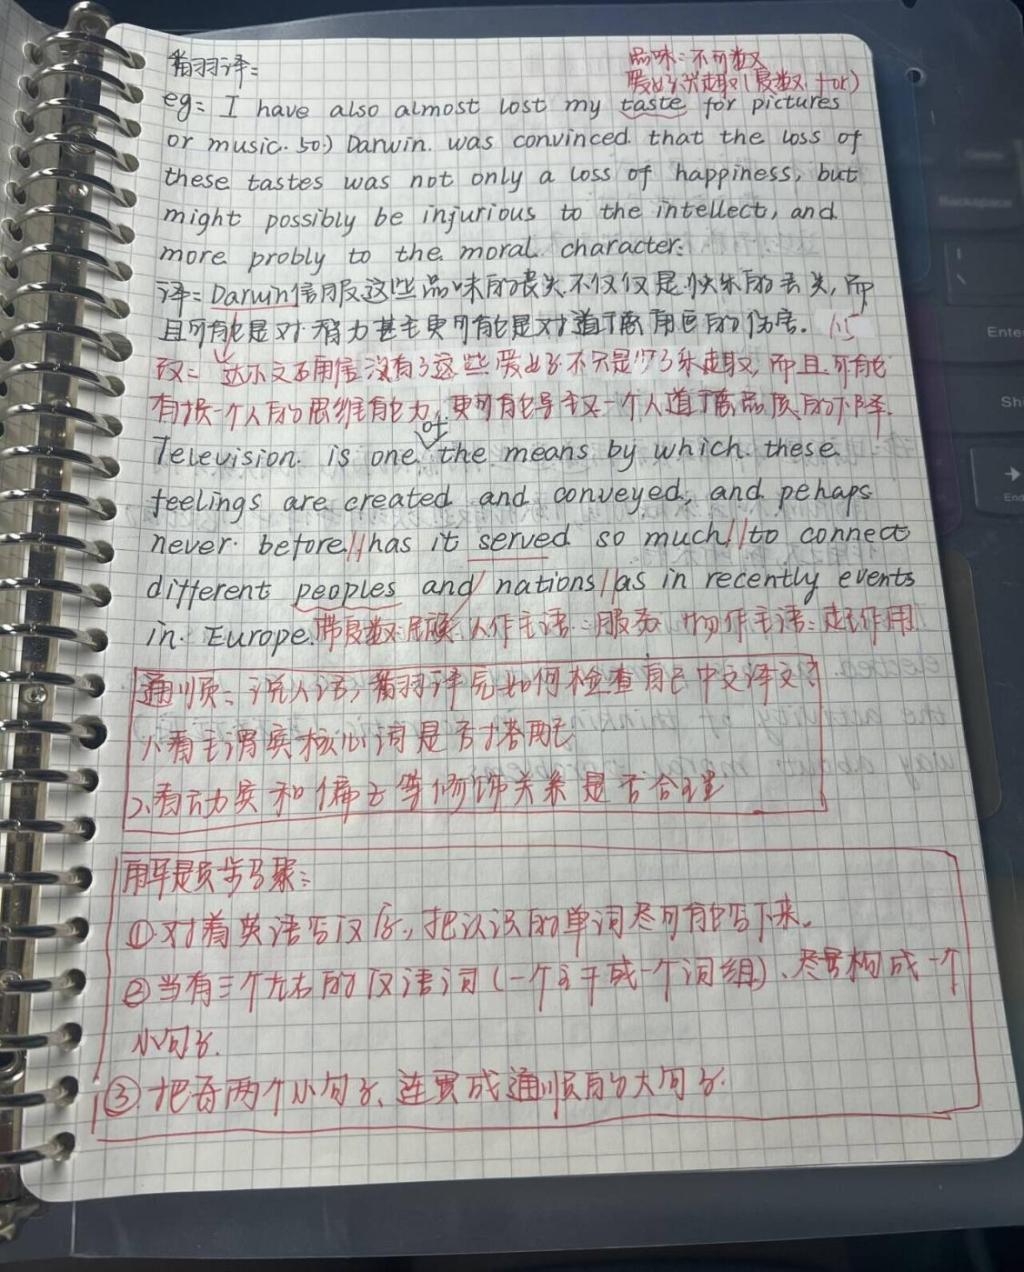 翻译:
品味:不可数
爱好兴趣(复数. for)
eg: I have also almost lost my taste for pictures
or music. 50) Darwin. was convinced. that the loss of
these tastes was not only a loss of happiness, but
might possibly be injurious to the intellect, and
more probly to the moral character.
译: Darwin信服这些品味的丧失不仅仅是快乐的丢失,而
且可能是对智力甚至更可能是对道德角色的伤害. 1.5
改: 达尔文 没有了这些爱好不只是少了乐趣,而且.可有能
有损一个人的思维能力,更可能导致一个人道德品质的下降.
of
Television. is one the means by which. these
feelings are created and conveyed, and pehaps
never. before//has it served so much//to connect
different peoples and/nations//as in recently events
in. Europe. 带复数:民族. 人作主语:服务 物作主语:起作用
通顺:说人话,翻译完如何检查自己中文译文?
1.看主谓宾核心词是否搭配
2.看动宾和偏正等修饰关系是否合理
解题步骤:
①对着英语写汉语,把认识的单词尽可能写下来.
②当有三个左右的汉语词(一个主干或一个词组)、尽量构成一个
小句子.
③.把每两个小句子、连贯成通顺的大句子.